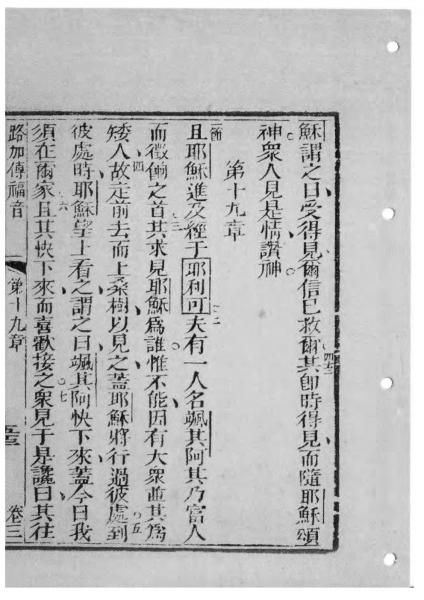 穌謂之曰受得見爾信已救爾其即時得見而隨耶穌頌
四三
神衆人見是情讚神
第十九章
且耶穌進及經于耶利可夫有一人名颯其阿其乃富人
節 二
而徵餉之首其求見耶穌爲誰惟不能因有大衆並其爲
三
矮人故走前去而上桑樹以見之蓋耶穌將行過彼處到
四 五
彼處時耶穌望上看之謂之曰颯其阿快下來蓋今日我
須在爾家且其快下來而喜歡接之衆見于是讒曰其往
六 七
路加傳福音 第十九章 卷三